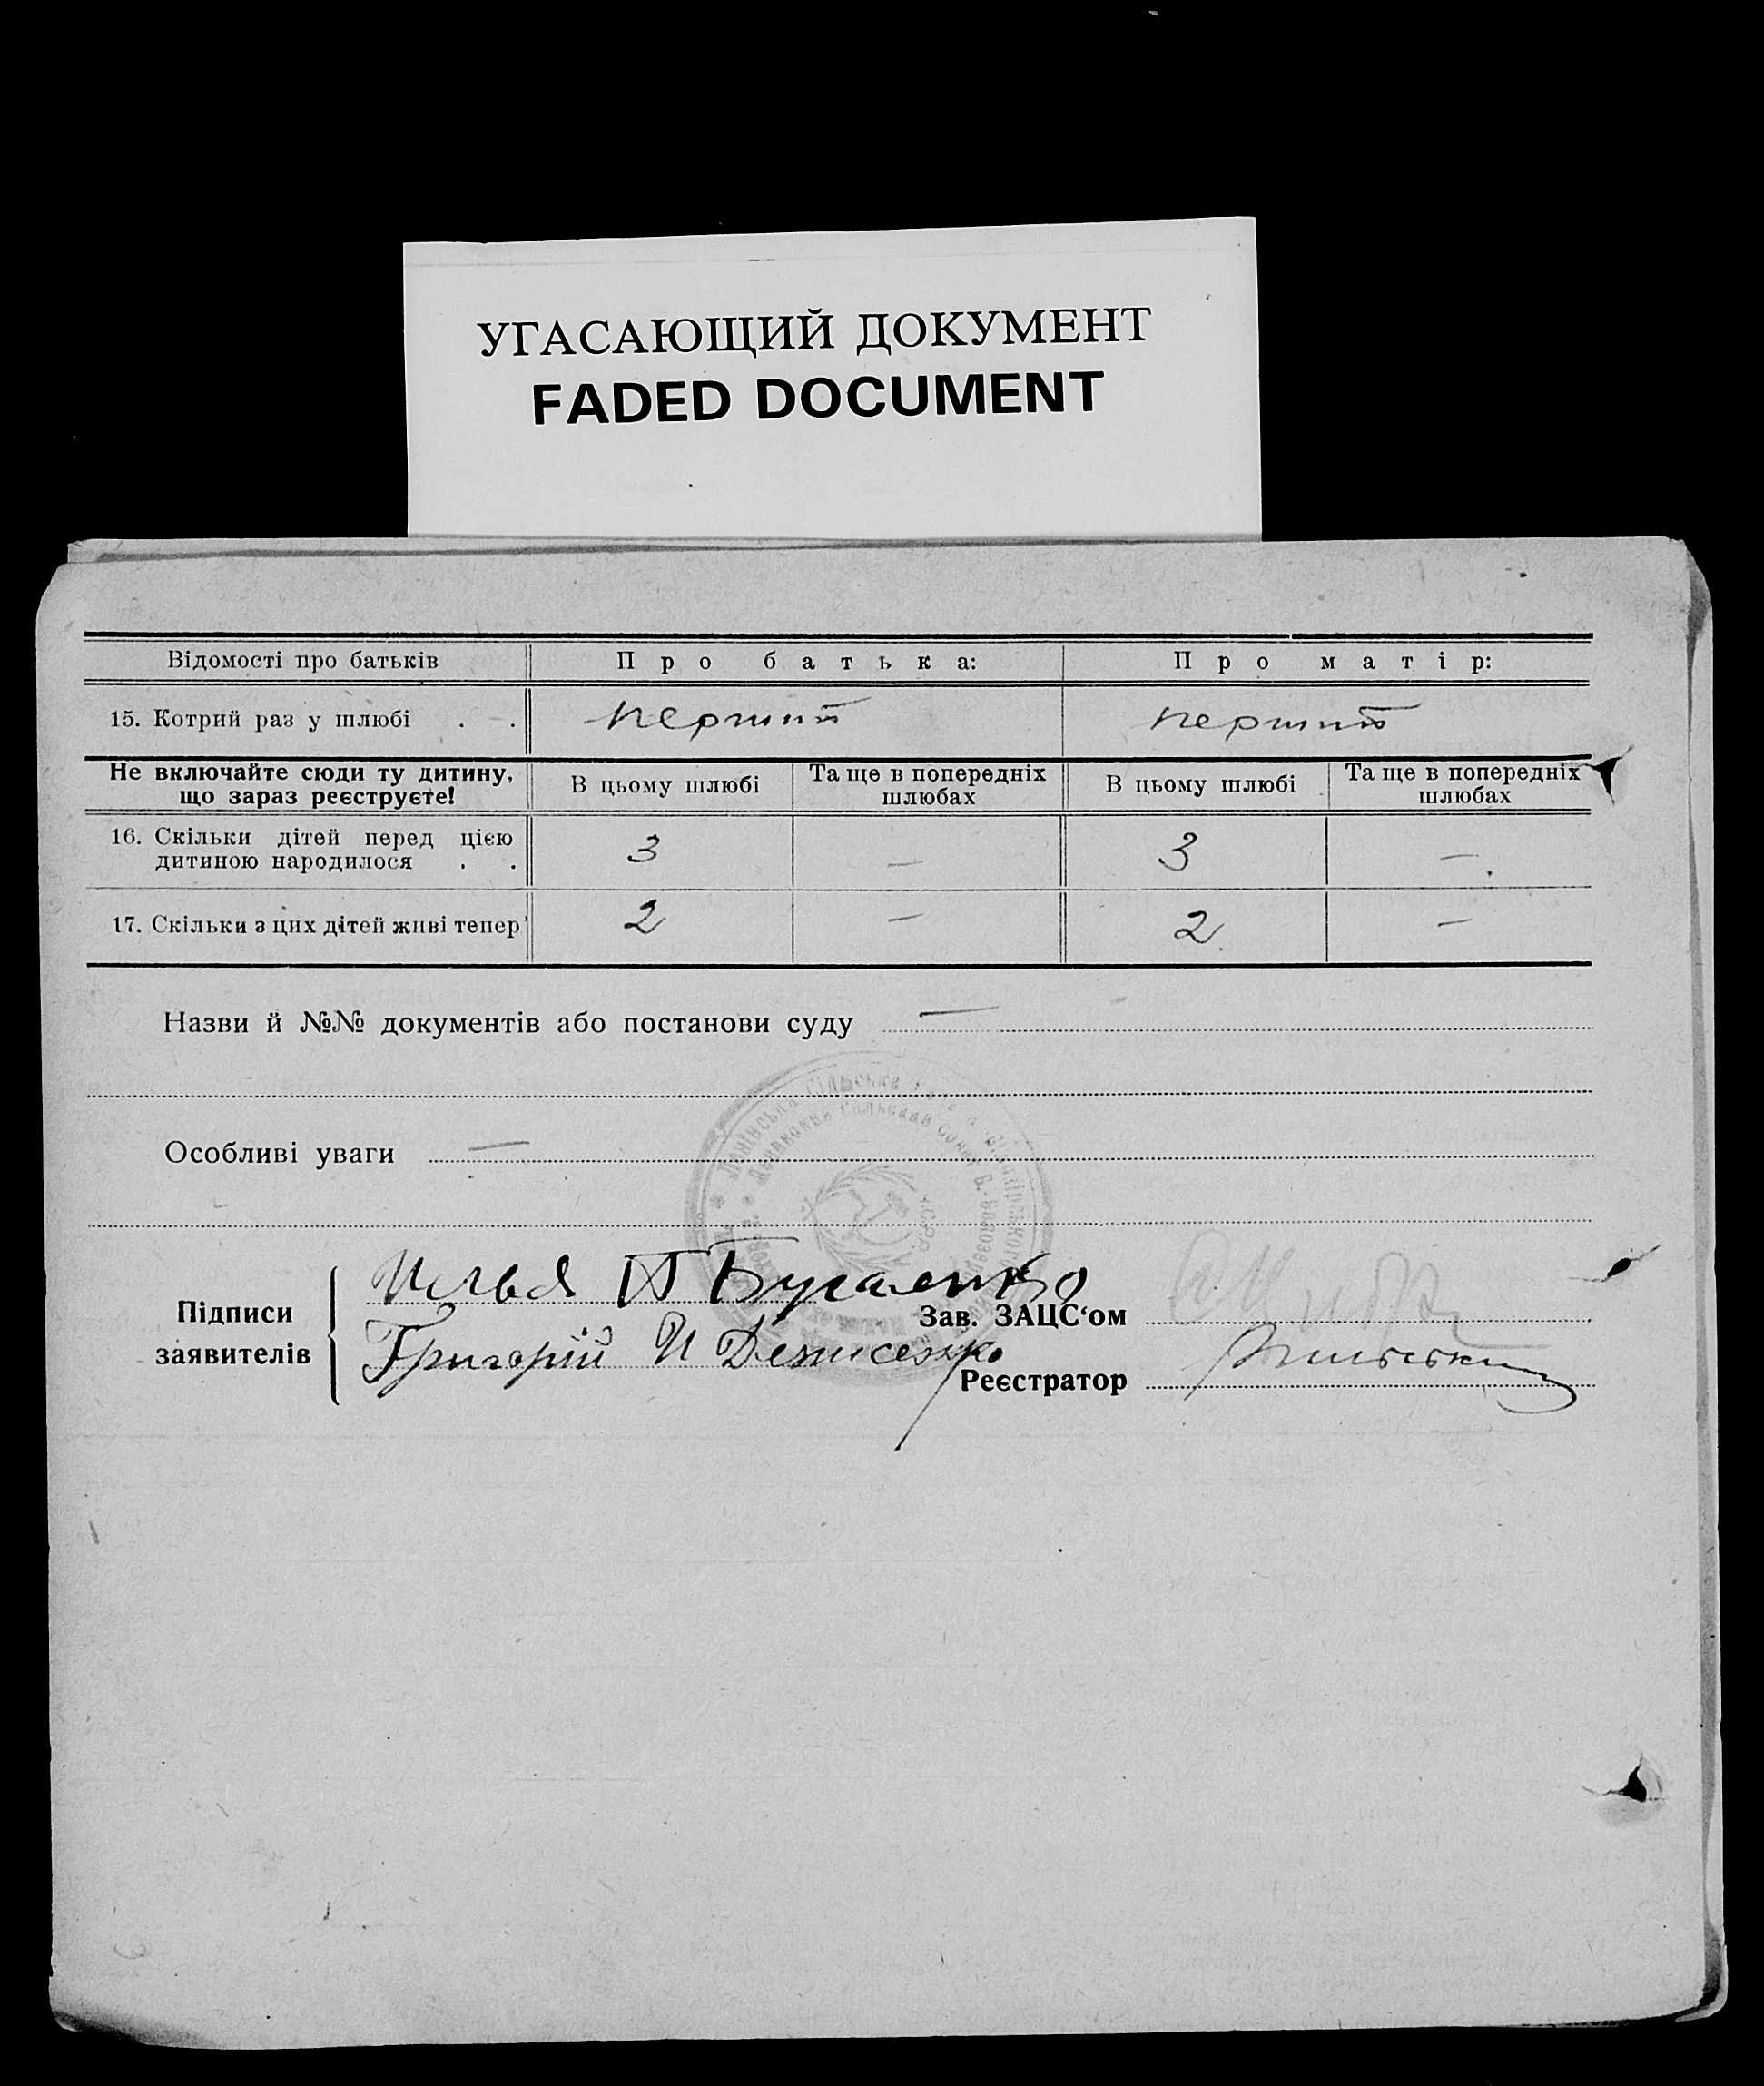 УГАСАЮЩИЙ ДОКУМЕНТ
FADED DOCUMENT
Відомості про батьків Про батька: Про матір:
15. Котрий раз у шлюбі . . перший перший
Не включайте сюди ту дитину, що зараз реєструєте! В цьому шлюбі Та ще в попередніх шлюбах В цьому шлюбі Та ще в попередніх шлюбах
16. Скільки дітей перед цією
дитиною народилося . . 3 — 3 —
17. Скільки з цих дітей живі тепер 2 — 2 —
Назви й №№ документів або постанови суду —
Особливі уваги —
Підписи заявителів
Илья П Бугаенко
Григорій И Денисенко
Зав. ЗАЦС‘ом
Реєстратор